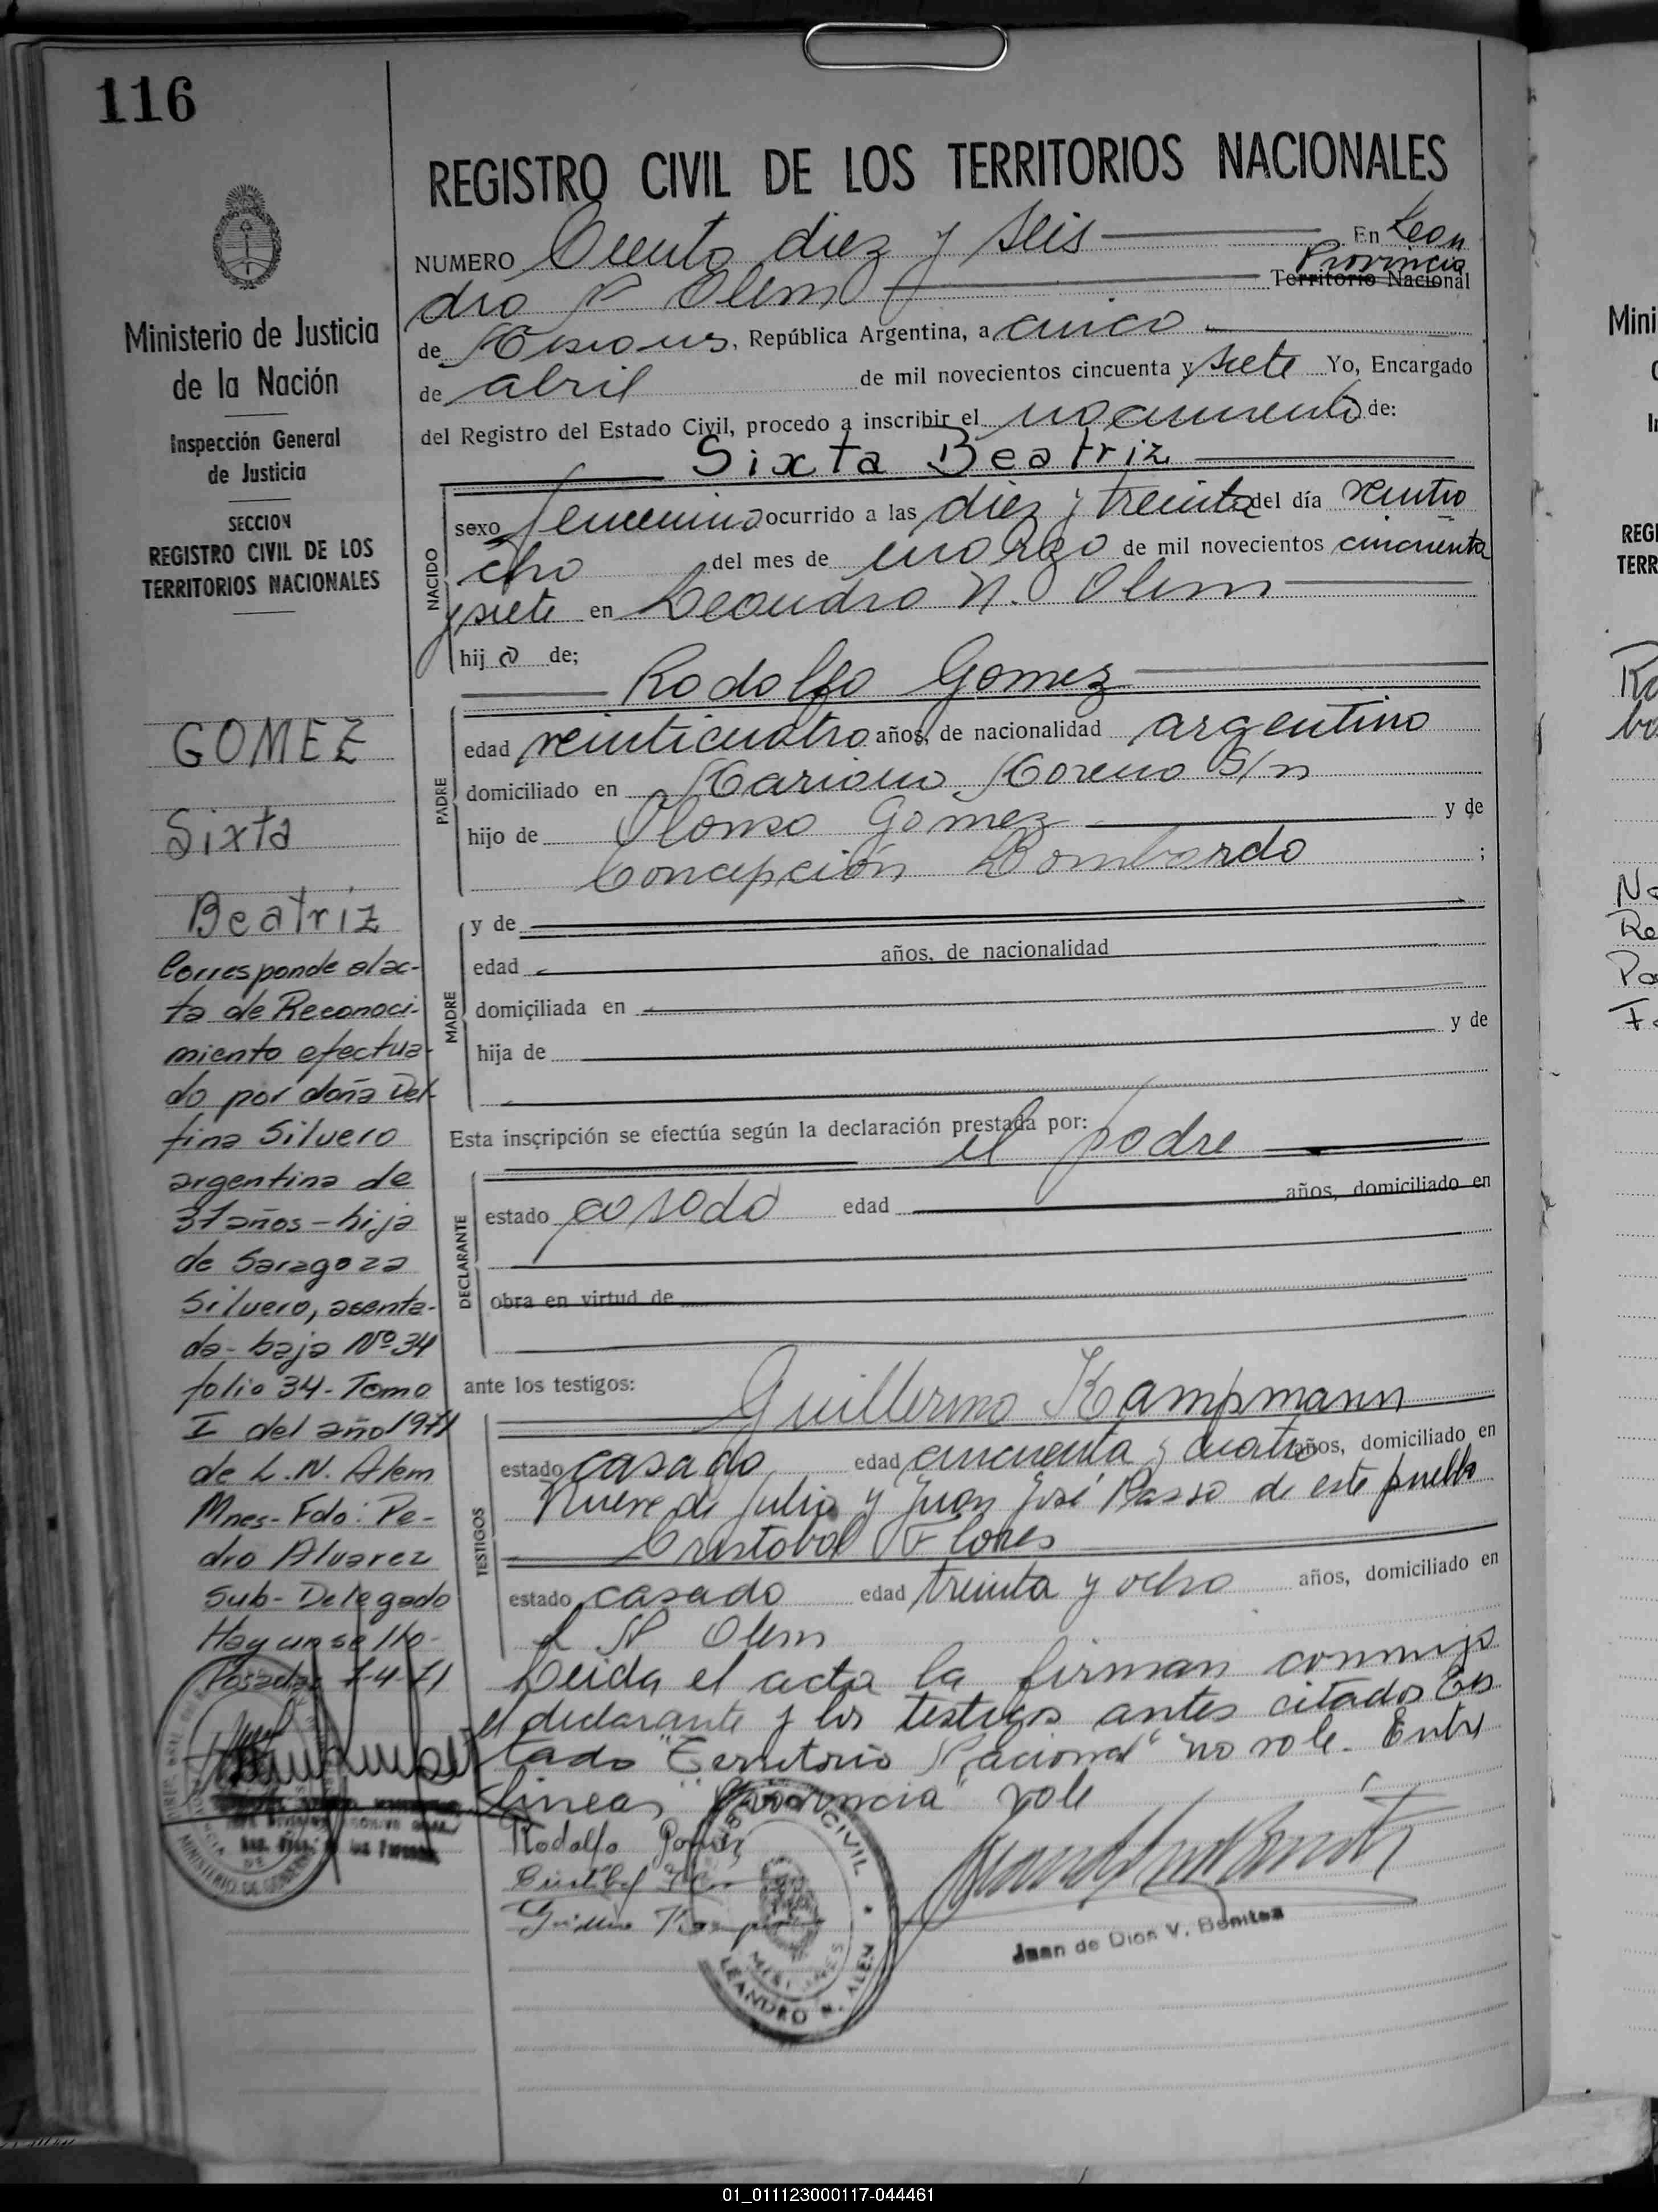 116
REGISTRO CIVIL DE LOS TERRITORIOS NACIONALES
NUMERO Ciento diez y seis En Lean
Provincia
dro N Alem Territorio Nacional
de Misiones, República Argentina, a cinco
de abril de mil novecientos cincuenta y siete Yo, Encargado
del Registro del Estado Civil, procedo a inscribir el nacimiento de:
Sixta Beatriz
NACIDO
sexo femenino ocurrido a las diez y treinta del día veintio
cho del mes de marzo de mil novecientos cincuenta
y siete en Leandro N. Alem
hij a de;
Rodolfo Gomez
PADRE
edad veinticuatro años, de nacionalidad argentino
domiciliado en Mariano Moreno S/n
hijo de Alonso Gomez y de
Concepción Lombardo ;
MADRE
y de
edad años, de nacionalidad
domiciliada en
hija de y de
Esta inscripción se efectúa según la declaración prestada por:
el padre
DECLARANTE
estado casado edad años, domiciliado en
obra en virtud de
ante los testigos:
Guillermo Kampmann
TESTIGOS
estado casado edad cincuenta y cuatro años, domiciliado en
Nueve de Julio y Juan José Passo de este pueblo
Cristobal Flores
estado casado edad treinta y ocho años, domiciliado en
L N Alem
Leida el acta la firman conmigo
el declarante y los testigos antes citados Es
tado "Territorio Nacional" no vale. Entre
lineas "Provincia" vale
Rodolfo Gomez
Juan de Dios V. Benitez
CIVIL
MISIONES
LEANDRO N. ALEM
Ministerio de Justicia
de la Nación
Inspección General
de Justicia
SECCION
REGISTRO CIVIL DE LOS
TERRITORIOS NACIONALES
GOMEZ
Sixta
Beatriz
Corresponde al ac-
ta de Reconoci-
miento efectua-
do por doña Del-
fina Silvero
argentina de
31 años - hija
de Saragoza
Silvero, asenta-
da - bajo Nº 34
folio 34 - Tomo
I del año 1971
de L. N. Alem
Mnes - Fdo: Pe-
dro Alvarez
Sub-Delegado
Hay un sello -
Posadas 7-4-71
MINISTERIO DE GOBIERNO
Mini
REGI
TERR
01_011123000117-044461